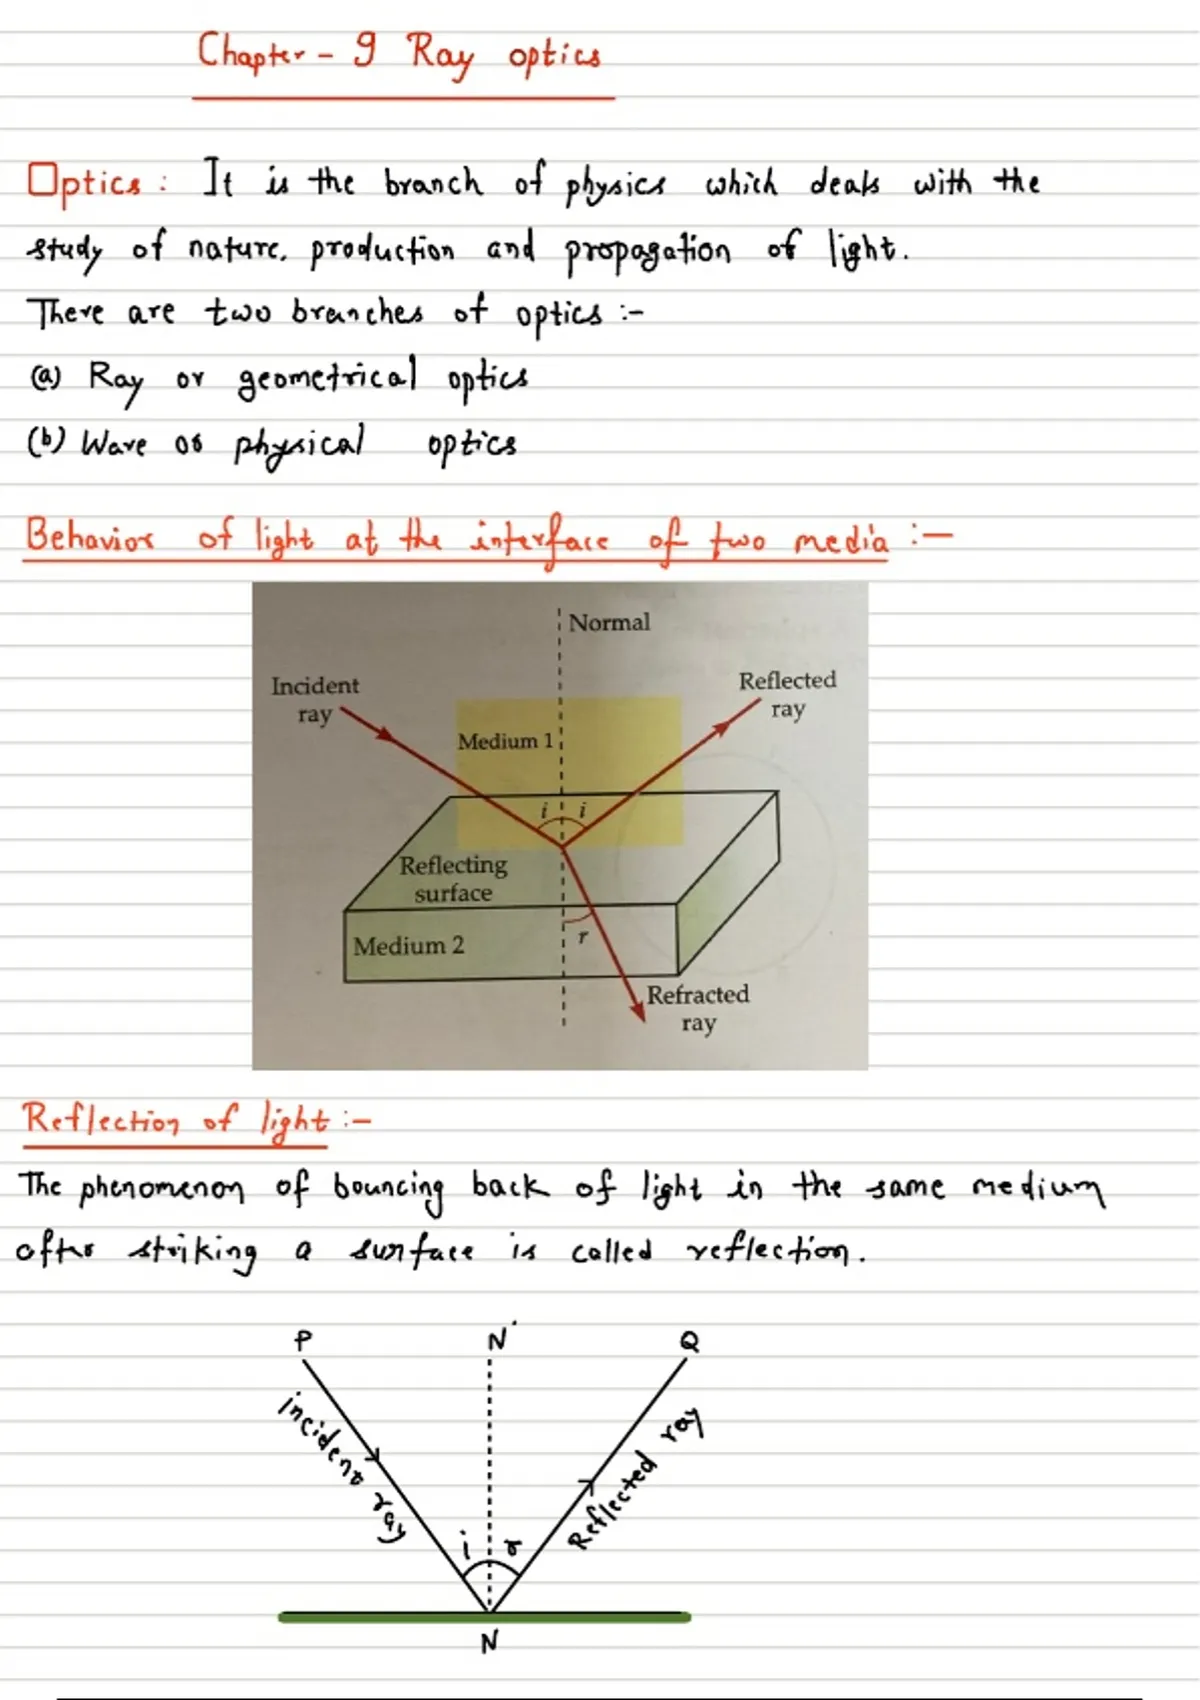 Chapter - 9 Ray optics
Optics : It is the branch of physics which deals with the
study of nature, production and propagation of light.
There are two branches of optics :-
(a) Ray or geometrical optics
(b) Wave or physical optics
Behavior of light at the interface of two media :-
Normal
Incident
ray
Reflected
ray
Medium 1
i i
Reflecting
surface
Medium 2
r
Refracted
ray
Reflection of light :-
The phenomenon of bouncing back of light in the same medium
after striking a surface is called reflection.
P N' Q
incident ray
Reflected ray
i r
N